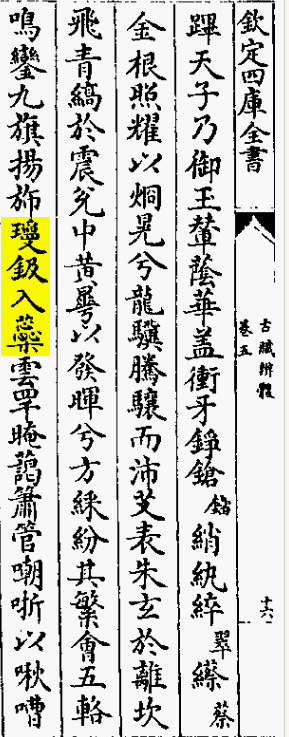 欽定四庫全書
古賦辨體
卷五
十六
蹕天子乃御玉輦蔭華盖衝牙錚鎗鐺綃紈綷翠縩蔡
金根照耀以烱晃兮龍驥騰驤而沛艾表朱玄於離坎
飛青縞於震兊中黄曄以發暉兮方綵紛其繁會五輅
鳴鑾九旗揚斾瓊鈒入蘂雲罕晻藹簫管嘲哳以啾嘈